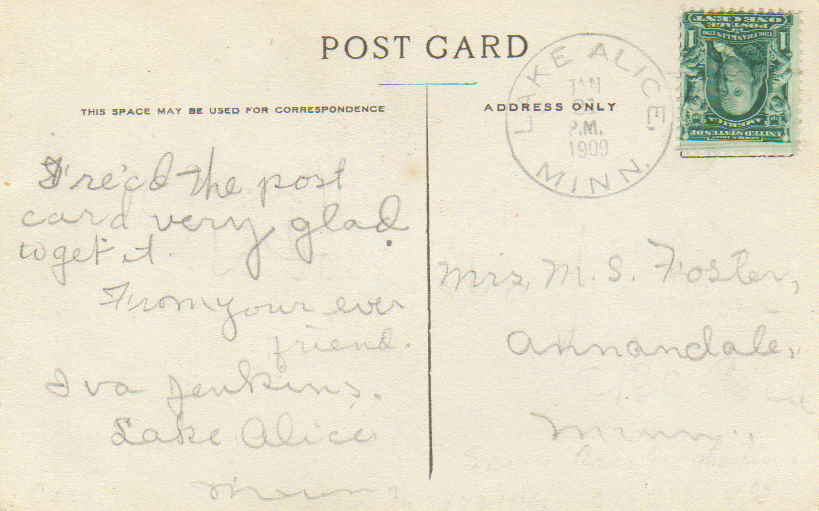 POST CARD
THIS SPACE MAY BE USED FOR CORRESPONDENCE
I rec'd the post
card very glad
to get it.
From your ever
friend.
Iva Jenkins.
Lake Alice
Minn,
ADDRESS ONLY
LAKE ALICE,
JAN
P.M.
1909
MINN.
ONE CENT
POSTAGE
1 1
AMERICA
UNITED STATES OF
Mrs, M. S. Foster,
Annandale,
Minn.,